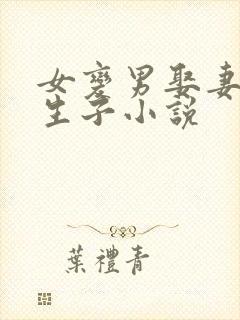 女變男娶妻
生子小說
葉禮青